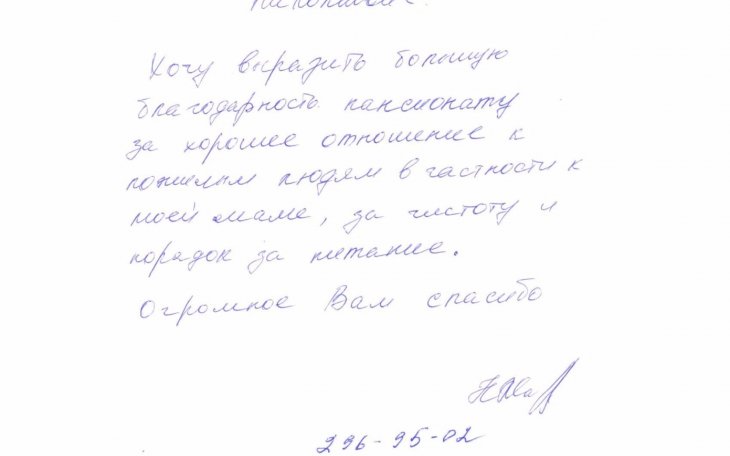 Хочу выразить большую
благодарность пансионату
за хорошее отношение к
пожилым людям в частности к
моей маме, за чистоту и
порядок за питание.
Огромное Вам спасибо
296-95-02